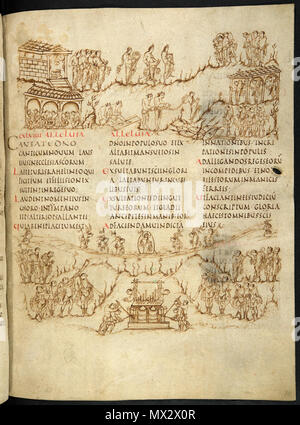 CXLVIIII ALLELUIA ALLELUIA
CANTATE DNO
CANTICUM NOUUM LAUS
EIUS IN ECLESIA SCORUM
LAETETUR ISRAHEL IN EO QUI
FECIT EUM ET FILIAE SION EX
ULTENT IN REGE SUO
LAUDENT NOMEN EIUS IN
CHORO IN TYMPANO
ET PSALTERIO PSALLANT EI
QUIA BENEPLACITUM EST
DNO IN POPULO SUO ET EX
ALTABIT MANSUETOS IN
SALUTE
EXULTABUNT SCI IN GLORIA
LAETABUNTUR IN CUBI
LIBUS SUIS
EXULTATIONES DI IN GUT
TURE EORUM ET GLADII
ANCIPITES IN MANIB EORU
AD FACIENDAM UINDICTA
IN NATIONIBUS INCRE
PATIONES IN POPULIS
AD ALLIGANDOS REGES EORU
IN COMPEDIBUS ET NO
BILES EORUM IN MANICIS
FERREIS
UT FACIANT IN EIS IUDICIU
CONSCRIPTUM GLORIA
HAEC EST OMNIBUS SCIS
EIUS
alamy
Image ID: MX2X0R
www.alamy.com